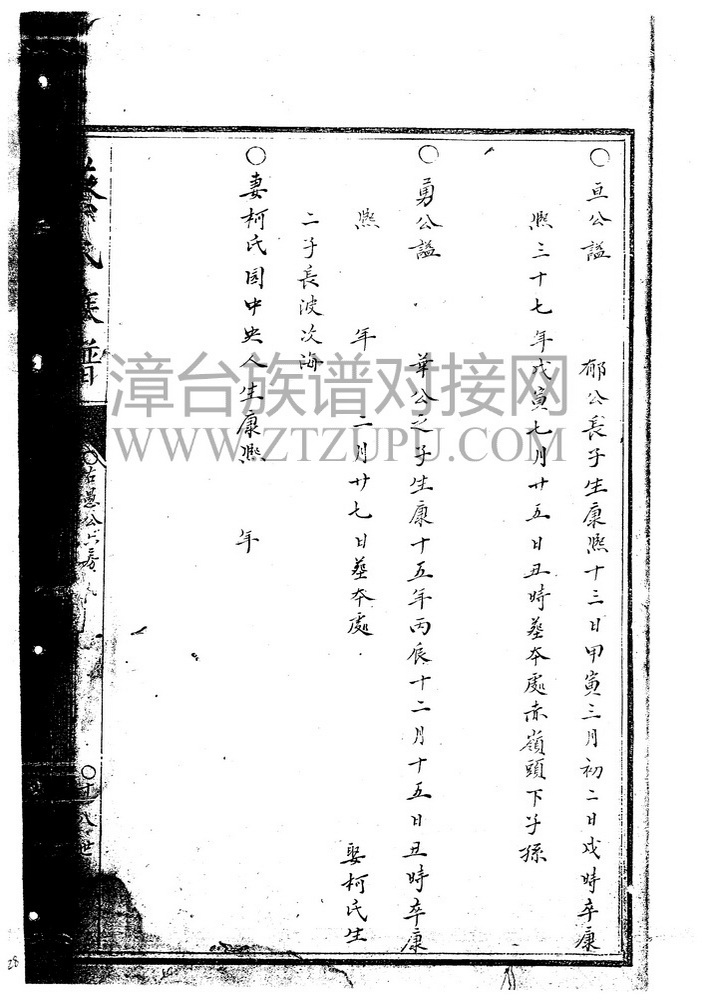 ○亘公諡　郁公長子生康熙十三日甲寅三月初二日戌時卒康
熙三十七年戊寅七月廿五日丑時葬本處赤嶺頭下子孫
○勇公諡　華公之子生康十五年丙辰十二月十五日丑時卒康
熙　年　二月廿七日葬本處　娶柯氏生
二子長波次海
○妻柯氏園中央人生康熙　年
氏族譜
○祐愚公六房
○十八世
漳台族谱对接网
WWW.ZTZUPU.COM
28